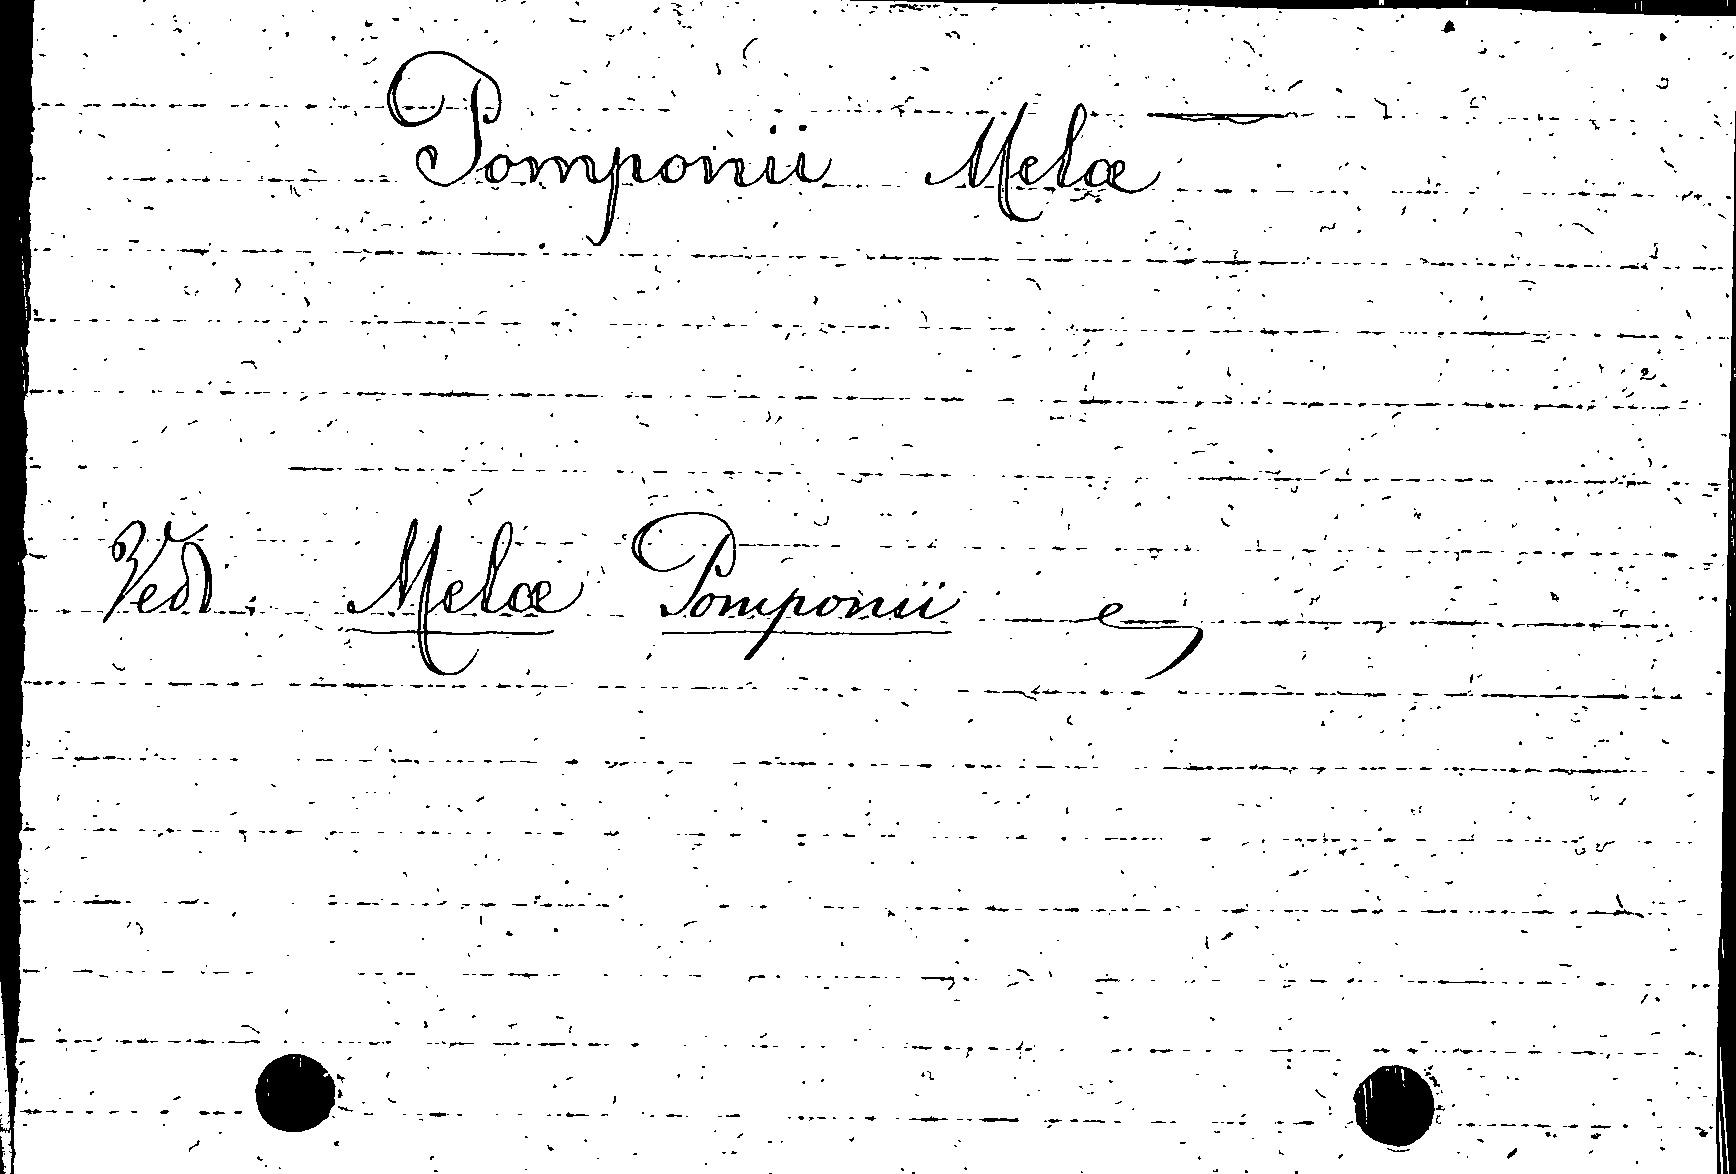 Pomponii Melæ
Vedi: Melæ Pomponii